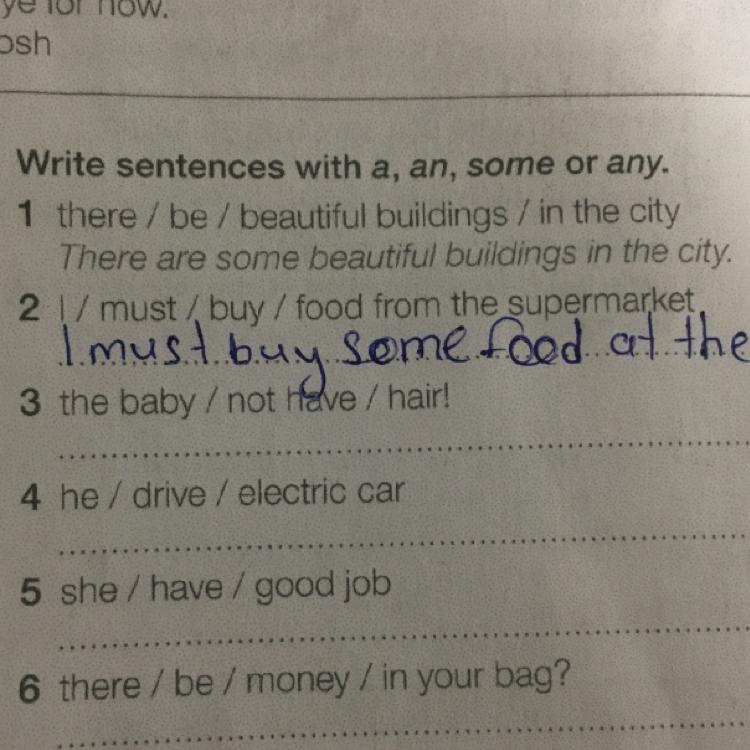 ye for now.
osh
Write sentences with a, an, some or any.
1 there / be / beautiful buildings / in the city
There are some beautiful buildings in the city.
2 I / must / buy / food from the supermarket
I must buy some food at the
3 the baby / not have / hair!
4 he / drive / electric car
5 she / have / good job
6 there / be / money / in your bag?